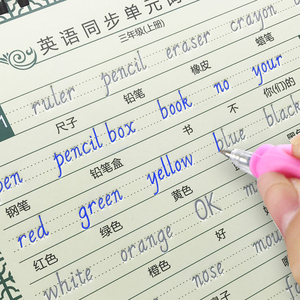 英语同步单元
三年级(上册)
ruler pencil eraser crayon
尺子 铅笔 橡皮 蜡笔
pen pencil box book no your
钢笔 铅笔盒 书 不 你(们)的
red green yellow blue black
红色 绿色 黄色
white orange OK
橙色 好
nose